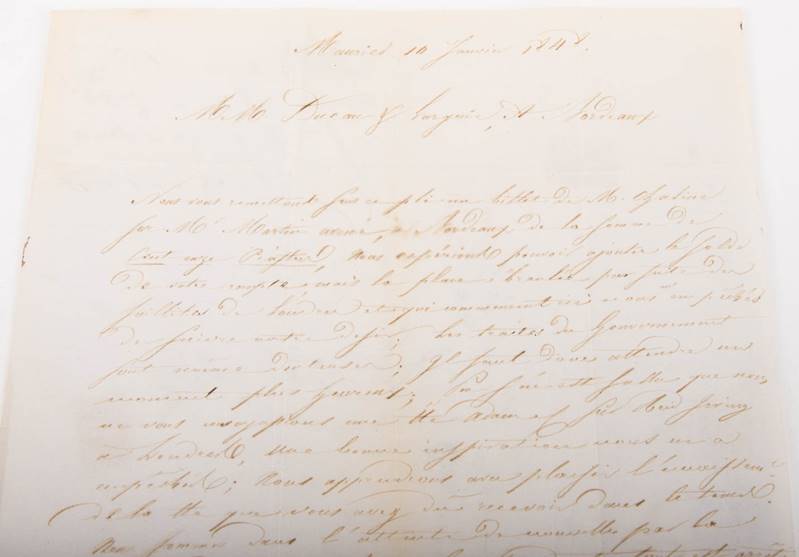 Maurice 10 Janvier 1848.
MM à Bordeaux
Nous vous remettons sous ce pli un billet de M.
sur Mr Martin à Bordeaux de la somme de
Cent onze Piastres, nous espérions pouvoir ajouter le Solde
de votre compte, mais la place ébranlée par suite des
faillites de Londres et qui commencent ici nous empêche
de suivre notre désir; les traites du Gouvernement
sont même douteuses; Il faut donc attendre un
moment plus heureux; que nous
ne vous une tte Adam sur
à Londres, une bonne inspiration nous en a
empêchés; Nous apprendrons avec plaisir
de la tte que vous avez dû recevoir dans le tems.
Nous sommes dans l'attente de nouvelles par la